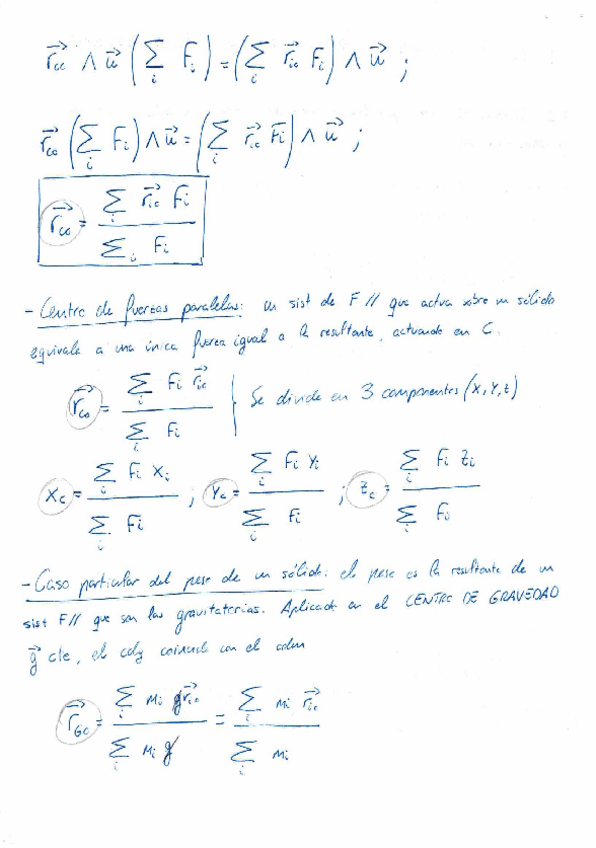 r⃗cc ∧ u⃗ (∑i Fi) = (∑i r⃗io Fi) ∧ u⃗ ;
r⃗co (∑i Fi) ∧ u⃗ = (∑i r⃗ic Fi) ∧ u⃗ ;
r⃗co = ∑i r⃗ic Fi / ∑i Fi
- Centro de fuerzas paralelas: un sist de F // que actua sobre un sólido
equivale a una única fuerza igual a la resultante, actuando en C.
r⃗co = ∑i Fi r⃗ic / ∑i Fi | Se divide en 3 componentes (x, y, z)
Xc = ∑i Fi Xi / ∑i Fi ; Yc = ∑i Fi Yi / ∑i Fi ; Zc = ∑i Fi Zi / ∑i Fi
- Caso particular del peso de un sólido: el peso es la resultante de un
sist F// que son las gravitatorias. Aplicado en el CENTRO DE GRAVEDAD
g⃗ cte, el cdg coincide con el cdm
r⃗Gc = ∑i mi g r⃗ic / ∑i mi g = ∑i mi r⃗ic / ∑i mi